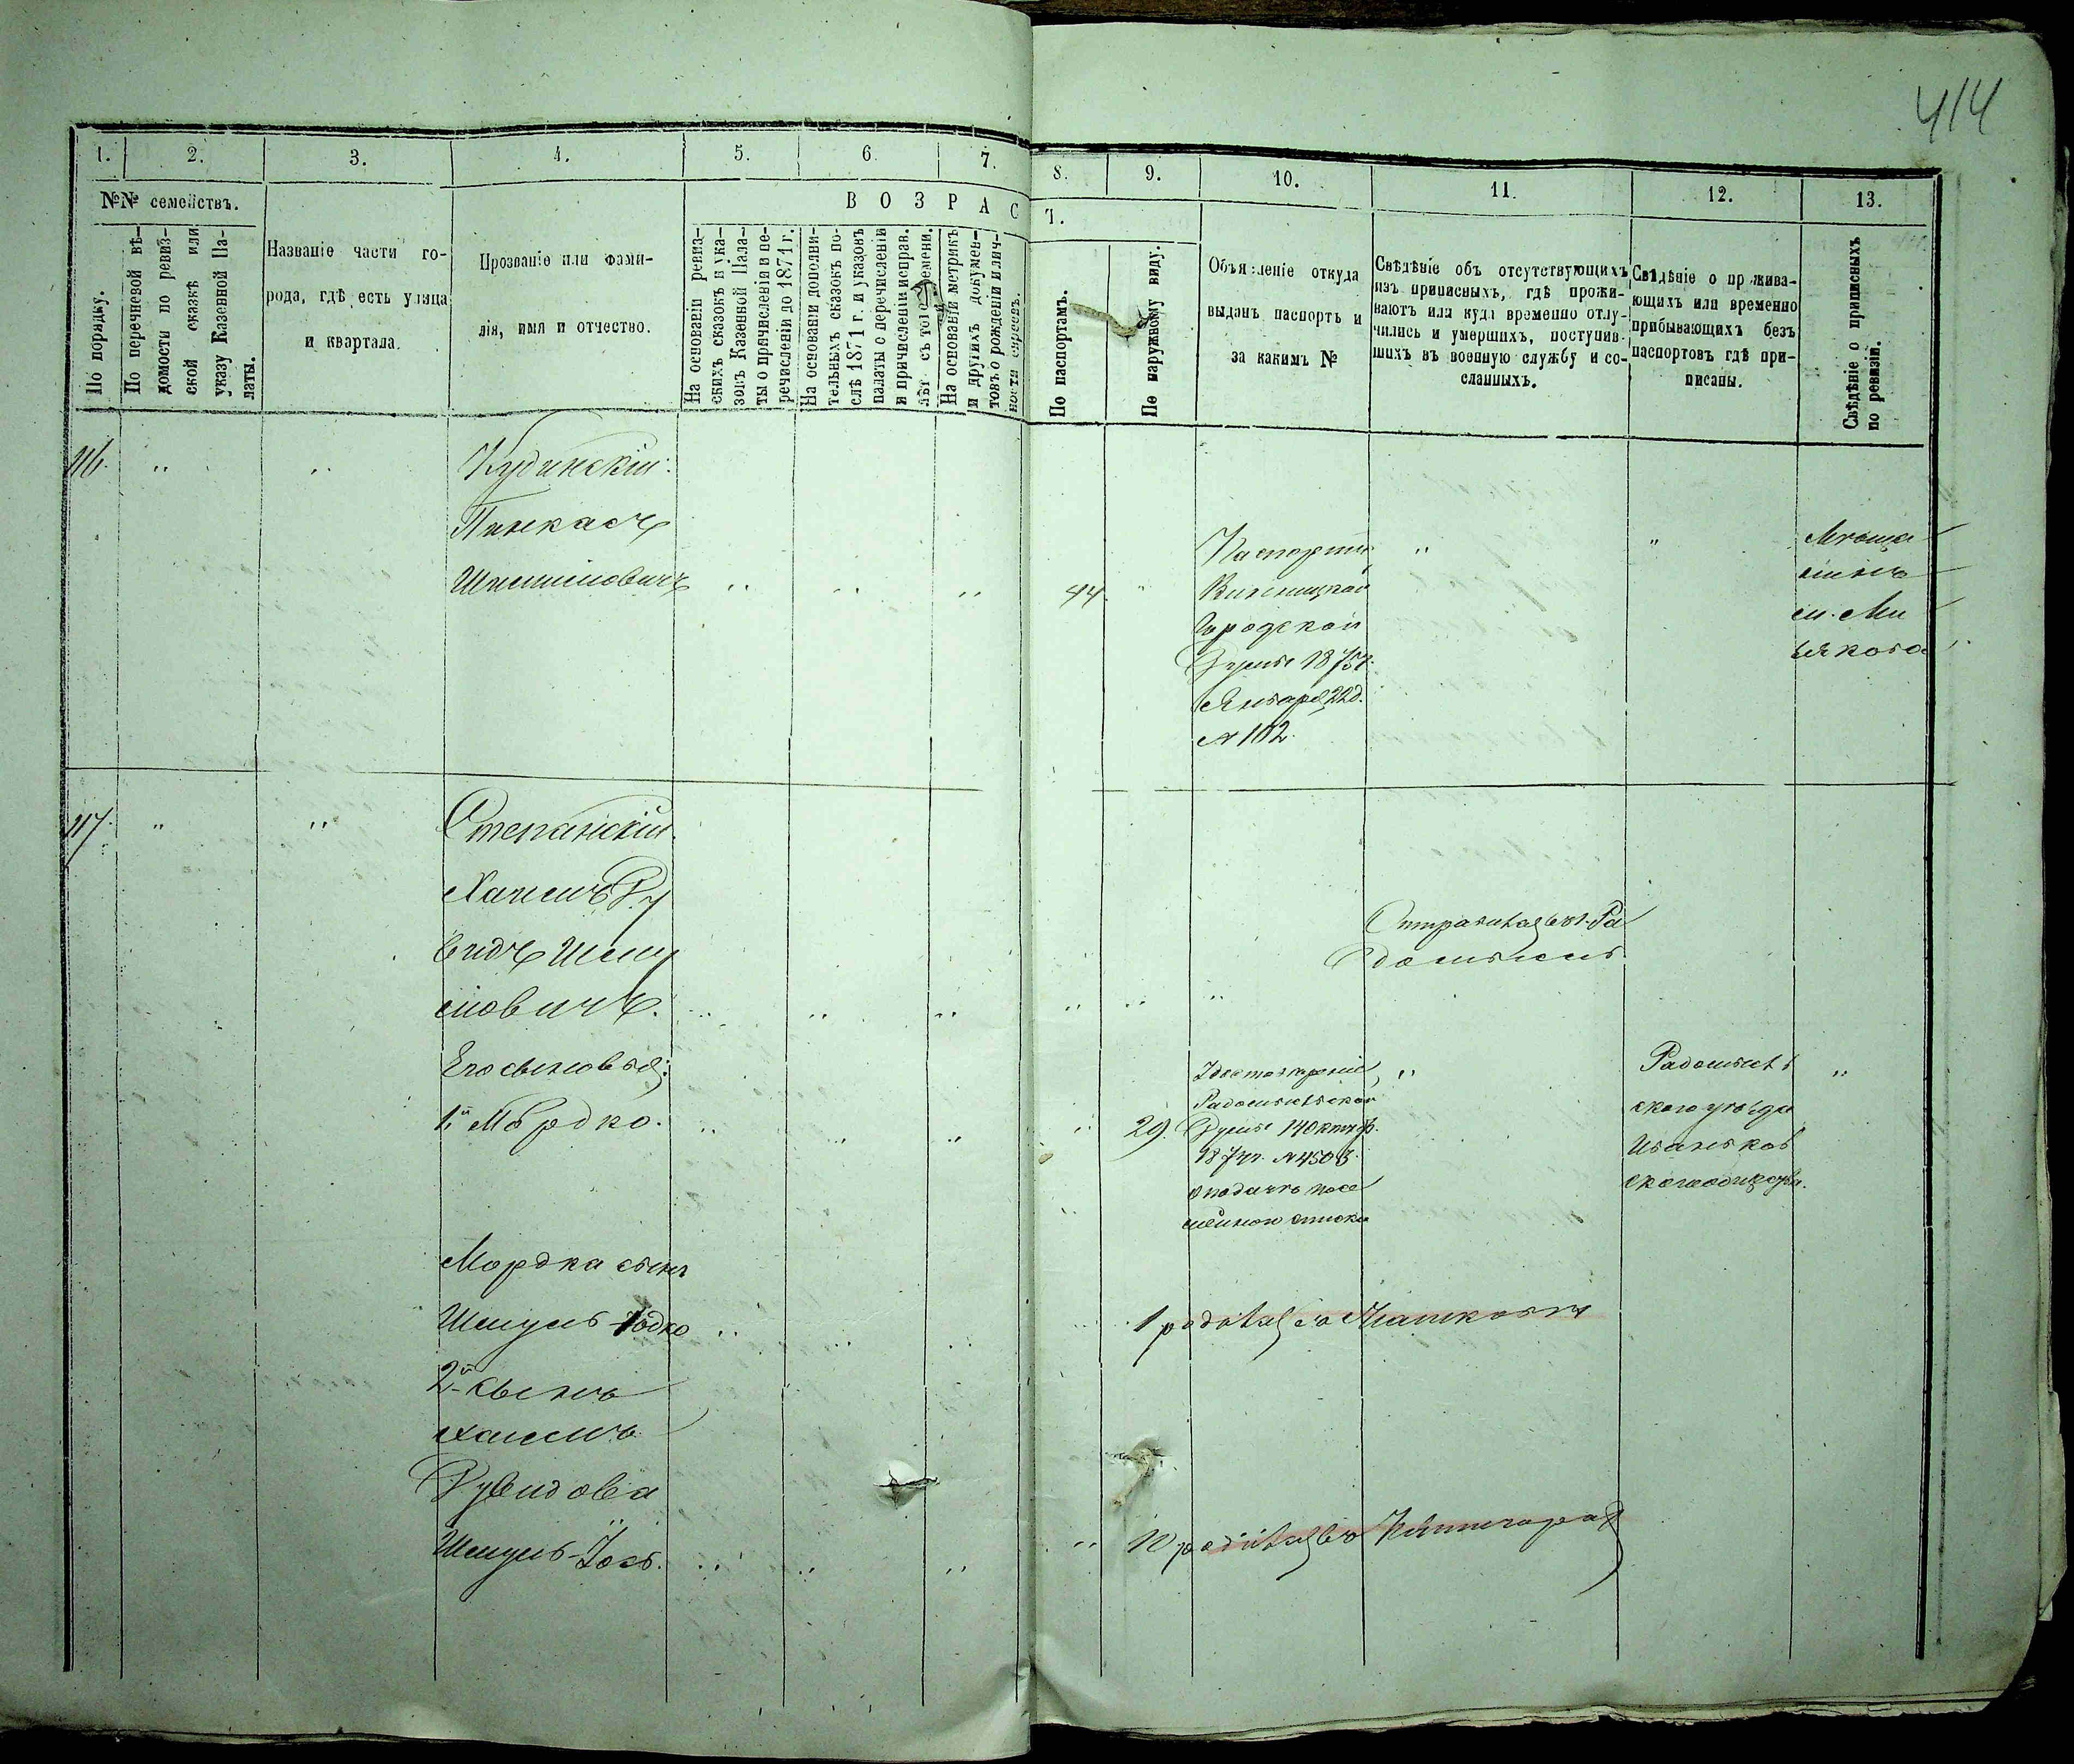 414
1.
2.
3.
4.
5.
6.
7.
8.
9.
10.
11.
12.
13.
№№ семействъ.
По порядку.
По перечневой вѣ-
домости по ревиз-
ской сказкѣ или
указу Казенной Па-
латы.
Названіе части го-
рода, гдѣ есть улица
и квартала.
Прозваніе или фами-
лія, имя и отчество.
ВОЗРАСТ.
На основаніи ревиз-
скихъ сказокъ и ука-
зовъ Казенной Пала-
ты о причисленіи и пе-
речисленіи до 1871 г.
На основаніи дополни-
тельныхъ сказокъ по-
слѣ 1871 г. и указовъ
палаты о перечисленіи
и причисленіи исправ.
лѣт съ того времени.
На основаніи метрикъ
и другихъ докумен-
товъ о рожденіи и лич-
ности евреевъ.
По паспортамъ.
По наружному виду.
Объявленіе откуда
выданъ паспортъ и
за какимъ №
Свѣдѣніе объ отсутствующихъ
изъ приписныхъ, гдѣ прожи-
ваютъ или куда временно отлу-
чились и умершихъ, поступив-
шихъ въ военную службу и со-
сланныхъ.
Свѣдѣніе о прожива-
ющихъ или временно
прибывающихъ безъ
паспортовъ гдѣ при-
писаны.
Свѣдѣніе о приписныхъ
по ревизіи.
116.
Кудинскій:
Пинкасъ
Шмилиовичъ
44
Паспортъ
Винницкой
Городской
Думы 1875г.
Января 22д.
№ 102.
Мѣща
нинъ
117.
Степанскій.
Хаимъ Ду
видъ Шму
ловичъ.
Его сыновья:
1й Мордко.
29.
Радомысльской
Думы
Радомысль
скаго уѣзда
Иваньков
Мордка сынъ
Шмуль-Іодко
1 родился
2й сынъ
Хаимъ
Дувидова
Шмуль-Іось.
родился въ